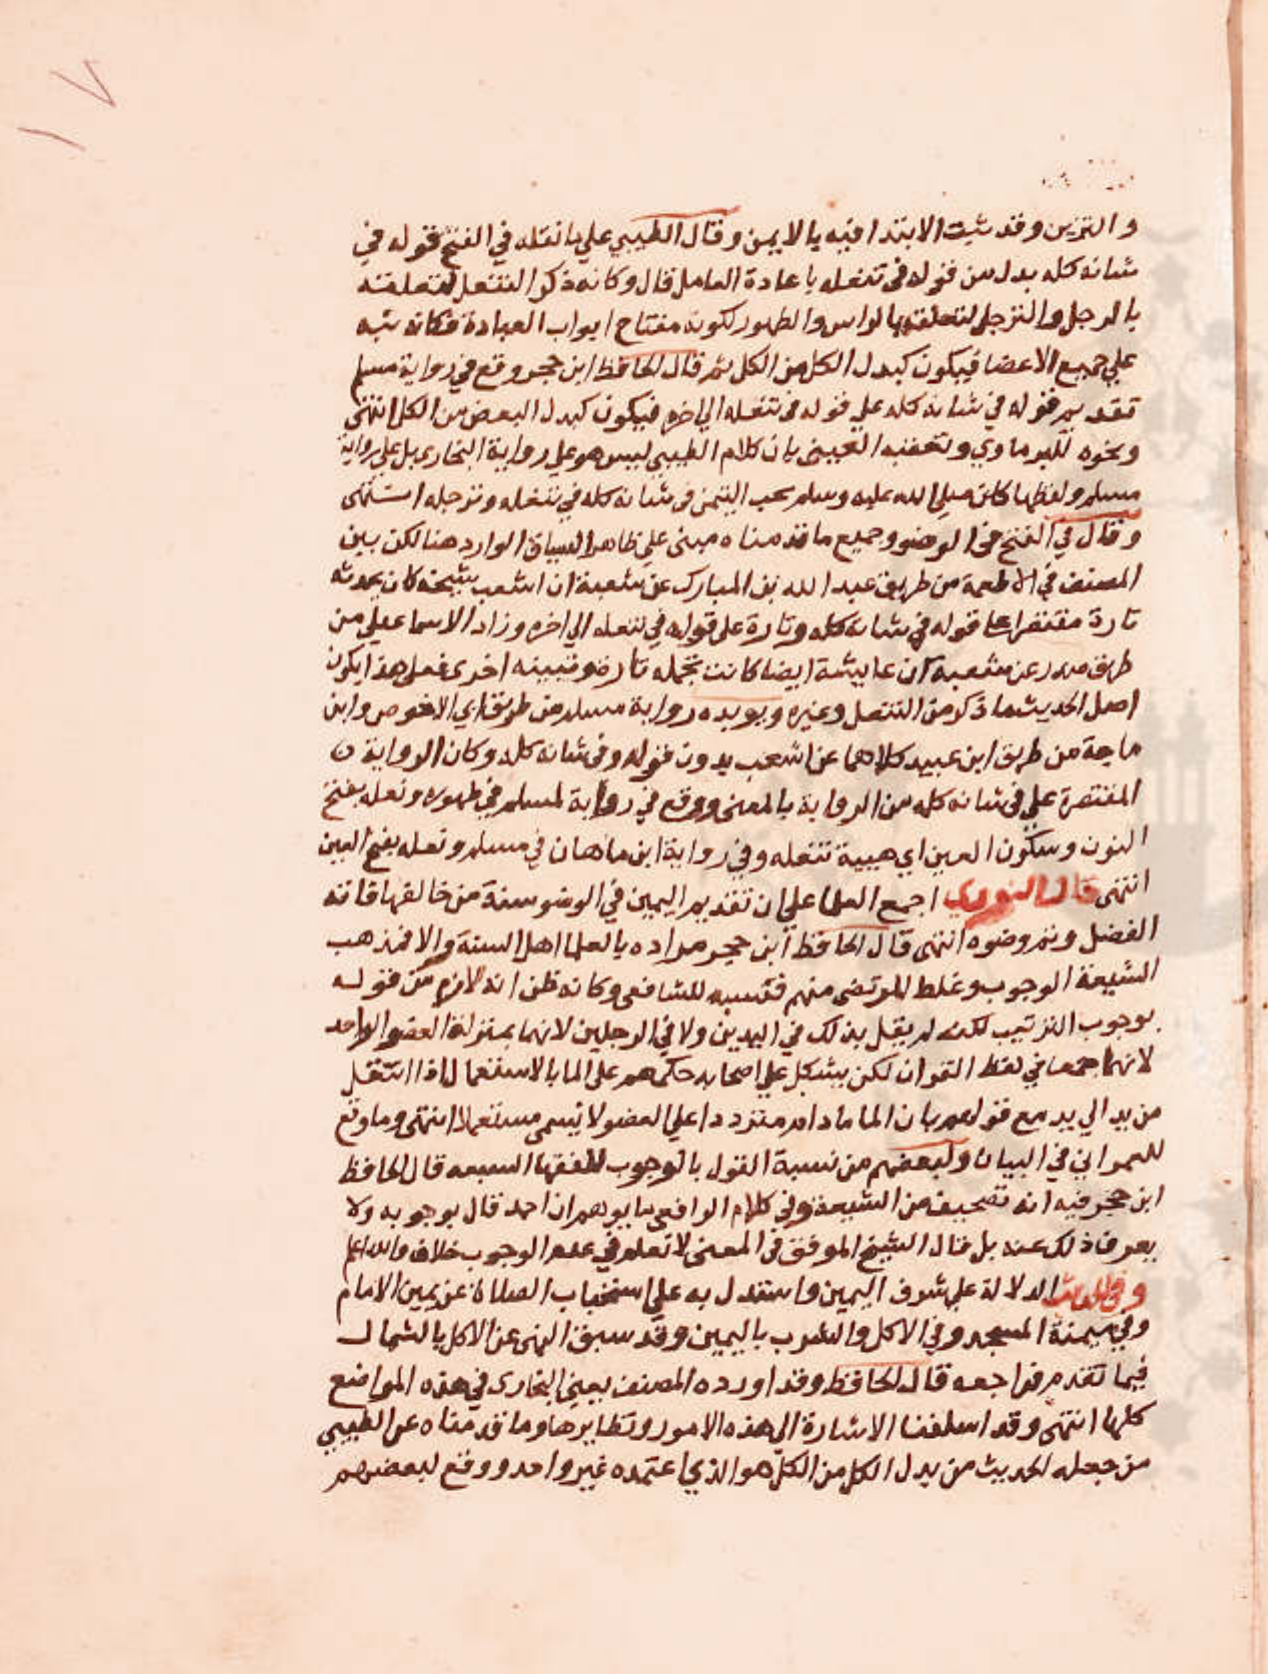 ١٧
والتزين وقد ثبت الابتدا فيه بالايمن وقال الطيبي علي ما نقله في الفتح قوله في
شانه كله بدل من قوله في تنعله باعادة العامل قال وكانه ذكر التنعل لتعلقته
بالرجل والترجل لتعلقه بالراس والطهور لكونه مفتاح ابواب العبادة فكانه نبه
علي جميع الاعضا فيكون كبدل الكل من الكل ثم قال الحافظ ابن حجر وقع في رواية مسلم
تقديم قوله في شانه كله علي قوله في تنعله الي اخره فيكون كبدل البعض من الكل انتهي
ونحوه للبرماوي وتعقبه العيني بان كلام الطيبي ليس هو علي رواية البخاري بل علي رواية
مسلم ولفظها كان صلي الله عليه وسلم يحب التيمن في شانه كله في تنعله وترجله انتهي
وقال في الفتح في الوضو وجميع ما قدمناه مبني علي ظاهر السياق الوارد هنا لكن بين
المصنف في الاطعمة من طريق عبد الله بن المبارك عن شعبة ان اشعب شيخه كان يحدث
تارة مقتصرا علي قوله في شانه كله وتارة علي قوله في تنعله الي اخره وزاد الاسماعيلي من
طريق عن شعبة ان عايشة ايضا كانت تجمله تارة وتبينه اخري فعلي هذا يكون
اصل الحديث ما ذكر من التنعل وغيره ويويده رواية مسلم من طريق ابي الاحوص وابن
ماجة من طريق ابن عبيد كلاهما عن اشعب بدون قوله وفي شانه كله وكان الرواية
المقتصرة علي في شانه كله من الرواية بالمعني ووقع في رواية لمسلم في طهوره ونعله بفتح
النون وسكون العين اي هيية تنعله وفي رواية ابن ماهان في مسلم ونعله بفتح العين
انتهي قال النووي اجمع العلما علي ان تقديم اليمين في الوضو سنة من خالفها فاته
الفضل وتم وضوه انتهي قال الحافظ ابن حجر مراده بالعلما اهل السنة والا فمذهب
الشيعة الوجوب وغلط المرتضي منهم فنسبه للشافعي وكانه ظن انه لازم من قوله
بوجوب الترتيب لكنه لم يقل بذلك في اليدين ولا في الرجلين لانهما بمنزلة العضو الواحد
لانهما جمعا في لفظ القران لكن يشكل علي اصحابه حكمهم علي الما بالاستعمال اذا انتقل
من يد الي يد مع قولهم بان الما ما دام مترددا علي العضو لا يسمي مستعملا انتهي وما وقع
للعمراني في البيان ولبعضهم من نسبة القول بالوجوب للفقها السبعه قال الحافظ
ابن حجر فيه انه تصحيف من الشيعة وفي كلام الرافعي ما يوهم ان احمد قال بوجوبه ولا
يعرف ذلك عنه بل قال الشيخ الموفق في المغني لا نعلم في عدم الوجوب خلافا والله اعلم
وفي الحديث الدلالة علي شرف اليمين واستدل به علي استحباب الصلاة عن يمين الامام
وفي ميمنة المسجد وفي الاكل والشرب باليمين وقد سبق النهي عن الاكل بالشمال
فيما تقدم فراجعه قال الحافظ وقد اورده المصنف يعني البخاري في هذه المواضع
كلها انتهي وقد اسلفنا الاشارة الي هذه الامور ونظايرها وما قدمناه عن الطيبي
من جعله الحديث من بدل الكل من الكل هو الذي اعتمده غير واحد ووقع لبعضهم